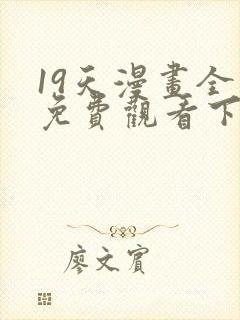 19天漫畫全
免費觀看下
廖文賓